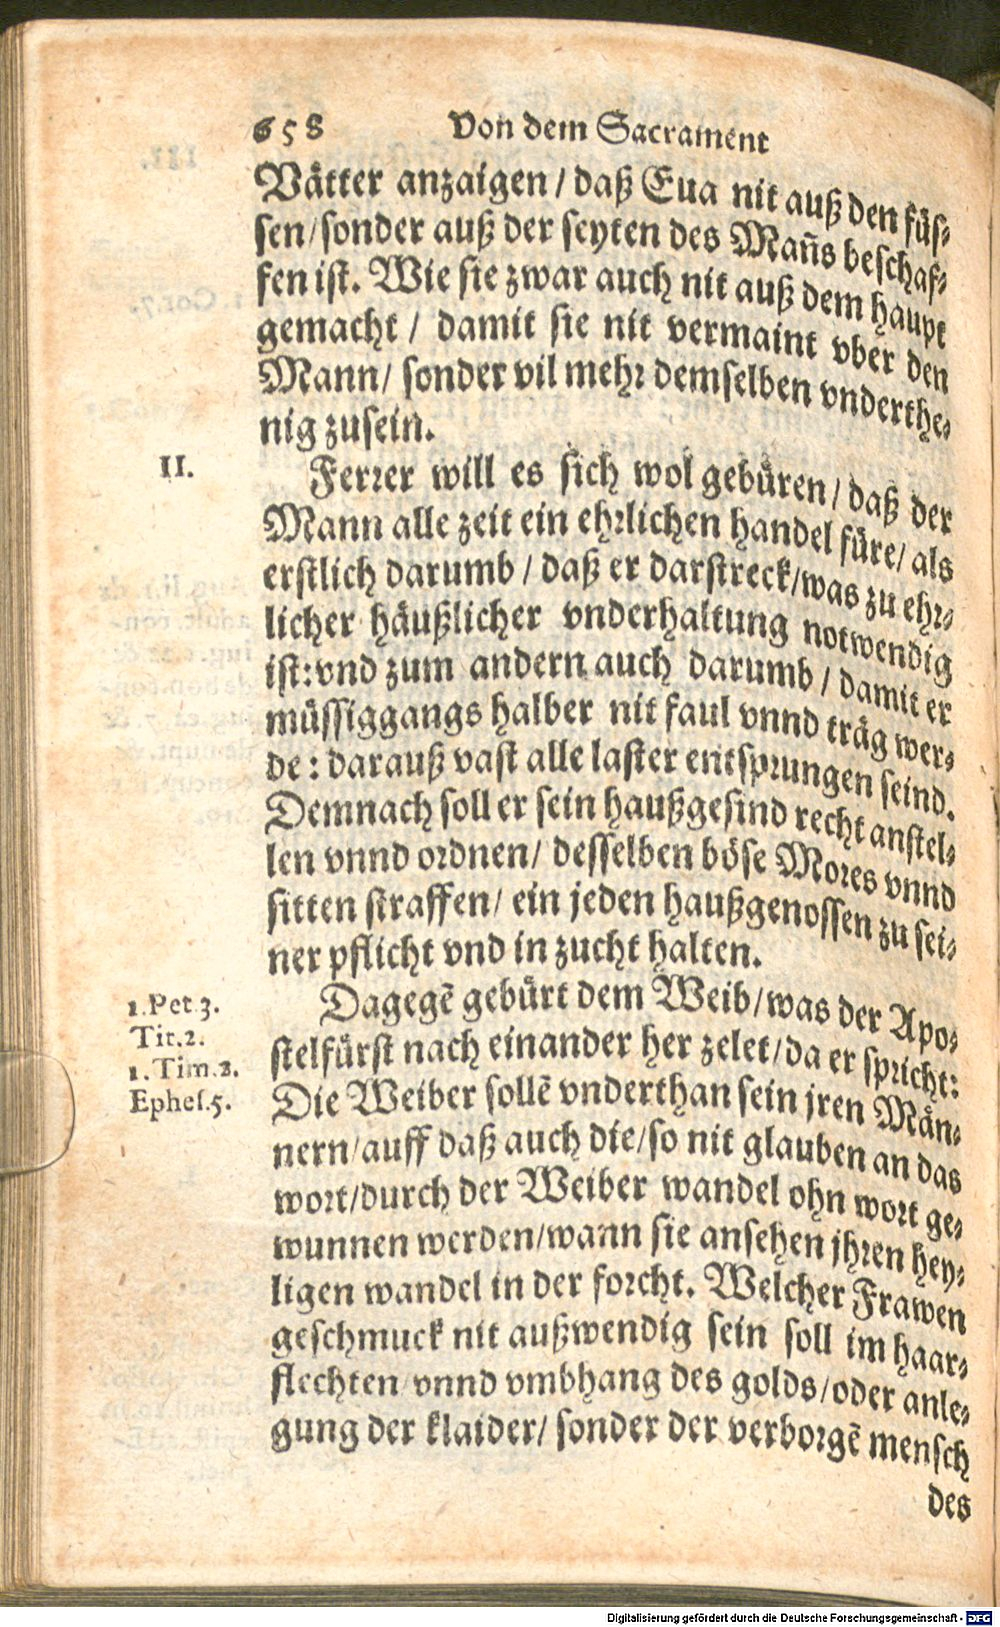 658 Von dem Sacrament
Vätter anzaigen / daß Eua nit auß den füs-
sen / sonder auß der seyten des Mañs beschaf-
fen ist. Wie sie zwar auch nit auß dem haupt
gemacht / damit sie nit vermaint vber den
Mann / sonder vil mehr demselben vnderthe-
nig zusein.
II.
Ferrer will es sich wol gebüren / daß der
Mann alle zeit ein ehrlichen handel füre / als
erstlich darumb / daß er darstreck / was zu ehr-
licher häußlicher vnderhaltung notwendig
ist: vnd zum andern auch darumb / damit er
müssiggangs halber nit faul vnnd träg wer-
de: darauß vast alle laster entsprungen seind.
Demnach soll er sein haußgesind recht anstel-
len vnnd ordnen / desselben böse Mores vnnd
sitten straffen / ein jeden haußgenossen zu sei-
ner pflicht vnd in zucht halten.
1. Pet. 3.
Tit. 2.
1. Tim. 2.
Ephes. 5.
Dagegē gebürt dem Weib / was der Apo-
stelfürst nach einander her zelet / da er spricht:
Die Weiber sollē vnderthan sein jren Män-
nern / auff daß auch die / so nit glauben an das
wort / durch der Weiber wandel ohn wort ge-
wunnen werden / wann sie ansehen jhren hey-
ligen wandel in der forcht. Welcher Frawen
geschmuck nit außwendig sein soll im haar-
flechten / vnnd vmbhang des golds / oder anle-
gung der klaider / sonder der verborgē mensch
des
Digitalisierung gefördert durch die Deutsche Forschungsgemeinschaft - DFG